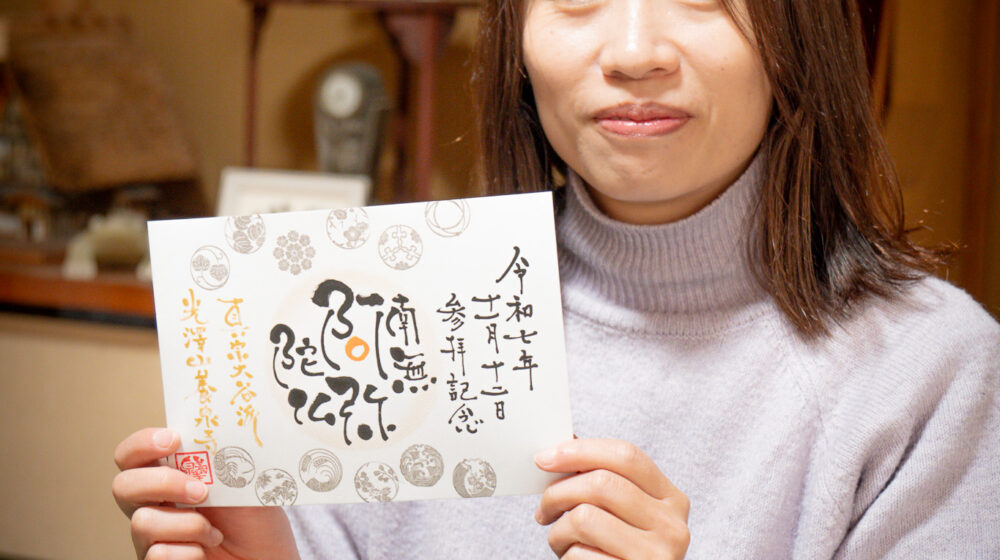 令和七年
十一月十二日
参拝記念
南無
阿弥
陀仏
真宗大谷派
光澤山養泉寺